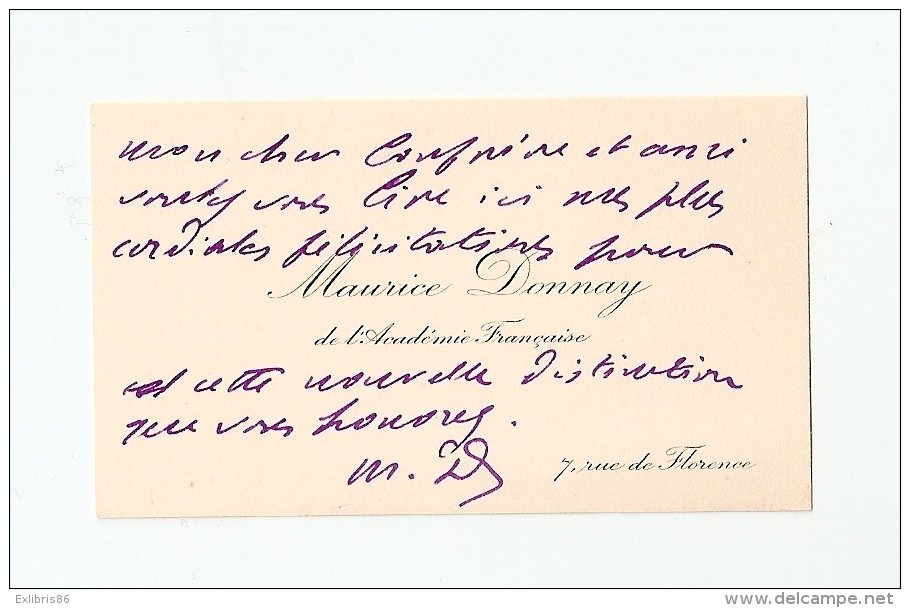 mon cher Confrère et ami
voulez vous lire ici mes plus
cordiales félicitations pour
Maurice Donnay
de l'Académie Française
cette nouvelle distinction
que vous honorez.
M. D
7, rue de Florence
Exlibris86
delcampe.net